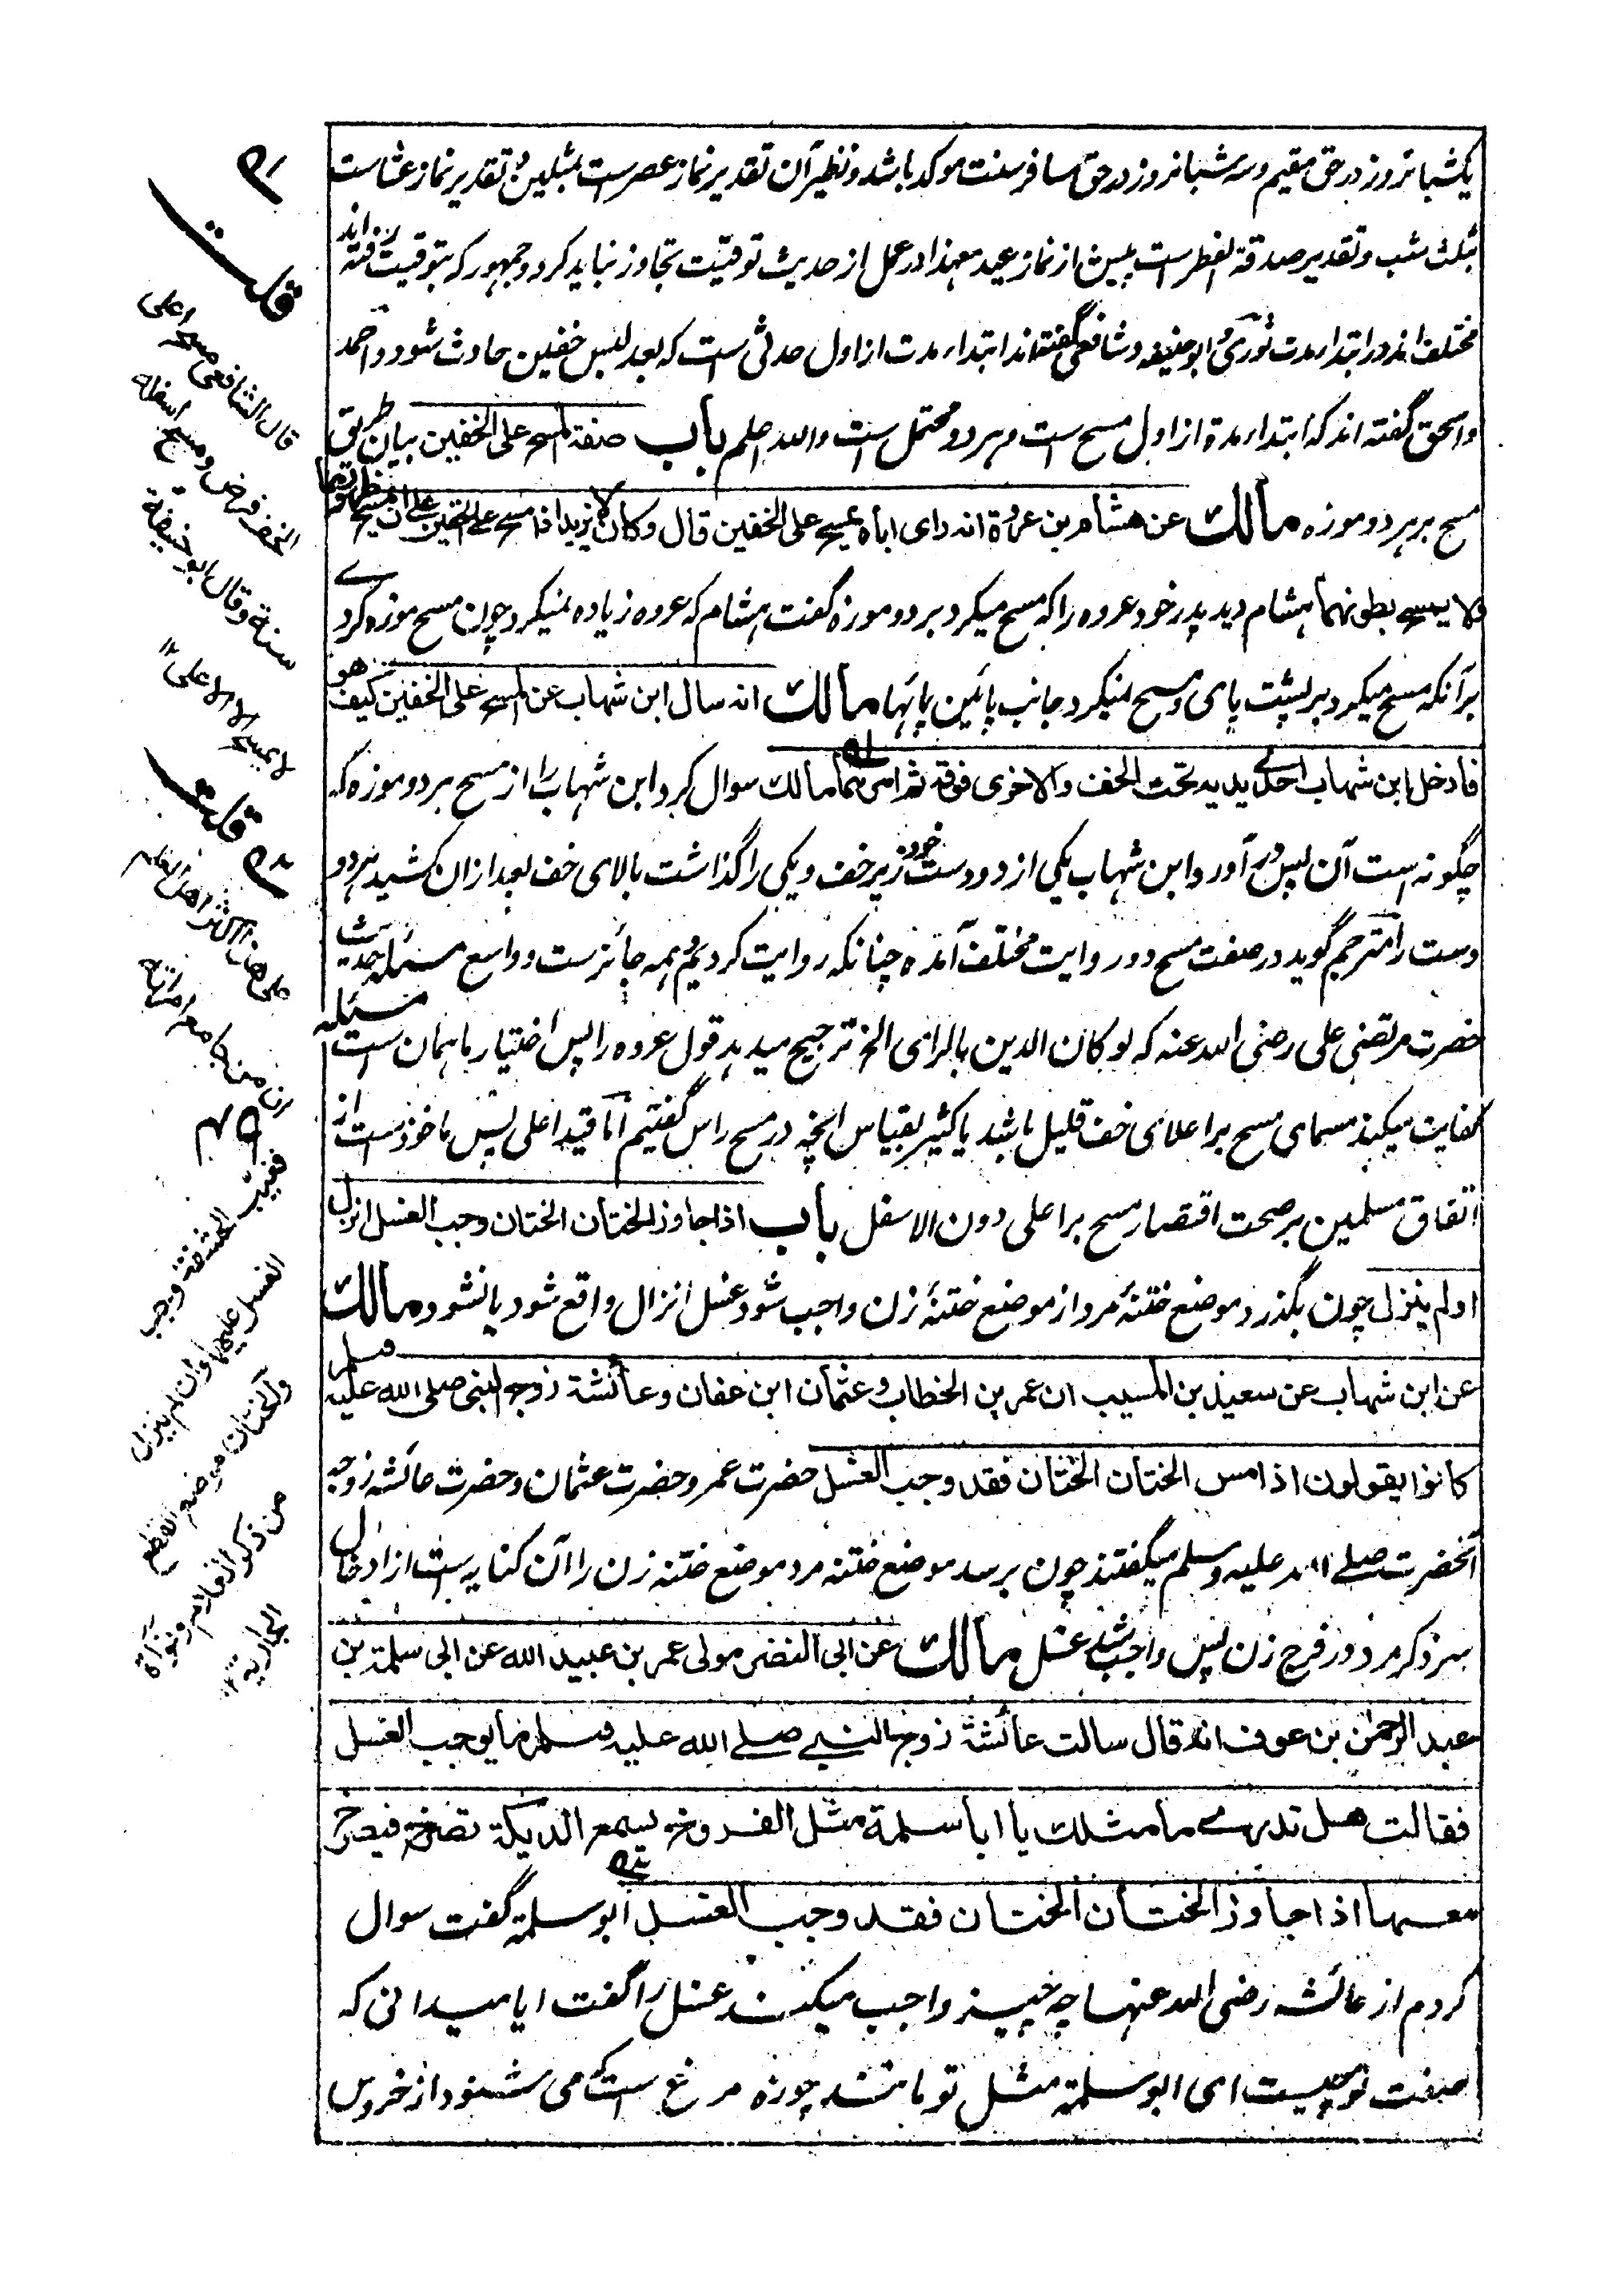 یکشبانروز در حق مقیم وسه شبانروز در حق مسافر سنت موکد باشد ونظیر آن تقدیر نماز عصر ست بمثلین و تقدیر نماز عشاست
بثلث شب وتقدیر صدقة الفطر ست پیش از نماز عید معهذا در عمل از حدیث توقیت تجاوز نباید کرد وجمهور که بتوقیت رفته اند
مختلف اند در ابتداء مدت ثوری و ابو حنیفه وشافعی گفته اند ابتداء مدت از اول حدثی ست که بعد لبس خفین حادث شود و احمد
واسحق گفته اند که ابتداء مدة از اول مسح ست وهر دو محتمل ست والله اعلم باب صفة المسح علی الخفین بیان طریق
مسح بر هر دو موزه مالك عن هشام بن عروة انه رای اباه یمسح علی الخفین قال وکان لا یزید اذا مسح علی الخفین علی ان یمسح ظهورهما
ولا یمسح بطونهما هشام دید پدر خود عروه را که مسح میکرد بر دو موزه گفت هشام که عروه زیاده نمیکرد چون مسح موزه کردے
بر آنکه مسح میکرد بر پشت پای و مسح نمیکرد جانب پائین پایها مالك انه سال ابن شهاب عن المسح علی الخفین کیف هو
فادخل ابن شهاب احدی یدیه تحت الخف والاخری فوقه ثم امرهما مالك سوال کرد ابن شهاب را از مسح بر دو موزه که
چگونه است آن پس در آورد ابن شهاب یکی از دو دست خود زیر خف ویکی را گذاشت بالای خف بعد ازان کشید هر دو
دست را مترجم گوید در صفت مسح دو روایت مختلف آمده چنانکه روایت کردیم و همه جائز ست و واسع مسئله حدیث
حضرت مرتضی علی رضی الله عنه که لو کان الدین بالرای الخ ترجیح میدهد قول عروه را پس اختیار ما همان ست مسئله
کفایت میکند مسمای مسح بر اعلای خف قلیل باشد یا کثیر بقیاس آنچه در مسح راس گفتیم اما قید اعلی پس ماخوذ ست از
اتفاق مسلمین بر صحت اقتصار مسح بر اعلی دون الاسفل باب اذا جاوز الختان الختان وجب الغسل انزل
او لم ینزل چون بگذرد موضع ختنهٔ مرد از موضع ختنهٔ زن واجب شود غسل انزال واقع شود یا نشود مالك
عن ابن شهاب عن سعید بن المسیب ان عمر بن الخطاب وعثمان ابن عفان وعائشة زوجه النبی صلی الله علیه وسلم
کانوا یقولون اذا مس الختان الختان فقد وجب الغسل حضرت عمر وحضرت عثمان وحضرت عائشه زوجه
آنحضرت صلے الله علیه وسلم میگفتند چون برسد موضع ختنه مرد موضع ختنه زن را آن کنایه ست از ادخال
سر ذکر مرد در فرج زن پس واجب شد غسل مالك عن ابی النضر مولی عمر بن عبید الله عن ابی سلمة بن
عبد الرحمن بن عوف انه قال سالت عائشة زوج النبی صلے الله علیه وسلم ما یوجب الغسل
فقالت هل تدری ما مثلك یا ابا سلمة مثل الفروخ یسمع الدیکة تصرخ فیصرخ
معها اذا جاوز الختان الختان فقد وجب الغسل ابو سلمة گفت سوال
کردم از عائشه رضی الله عنها چه چیز واجب میکند غسل را گفت ایا میدانی که
صفت تو چیست ای ابو سلمة مثل تو مانند چوزه مرغ ست که می شنود از خروس
قلت
قال الشافعی مسح اعلی
الخف فرض ومسح اسفله
سنة وقال ابو حنیفة
لا یمسح الا الاعلی
قلت
علی هذا اکثر اهل العلم
ان من جامع امراته
فغیب الحشفة وجب
الغسل علیهما وان لم ینزل
والختان موضع القطع
من ذکر الغلام ونواة
الجاریة